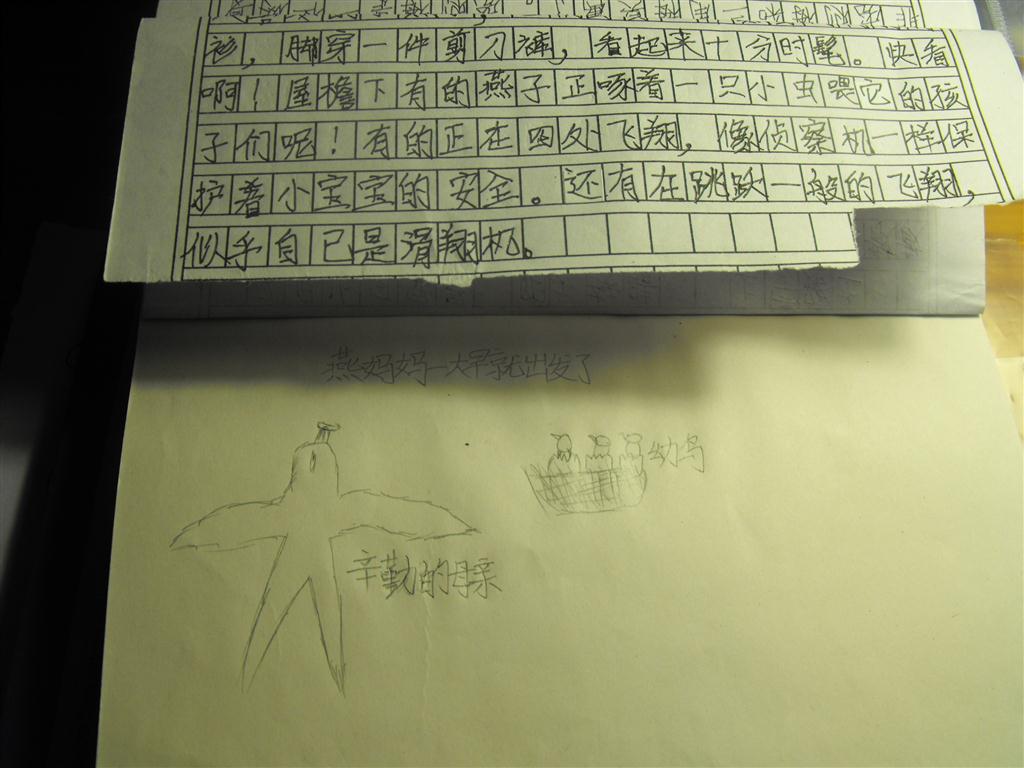 衫，脚穿一件剪刀裤，看起来十分时髦。快看
啊！屋檐下有的燕子正啄着一只小虫喂它的孩
子们呢！有的正在四处飞翔，像侦察机一样保
护着小宝宝的安全。还有在跳跃一般的飞翔，
似乎自已是滑翔机。
燕妈妈一大早就出发了
幼鸟
辛勤的母亲